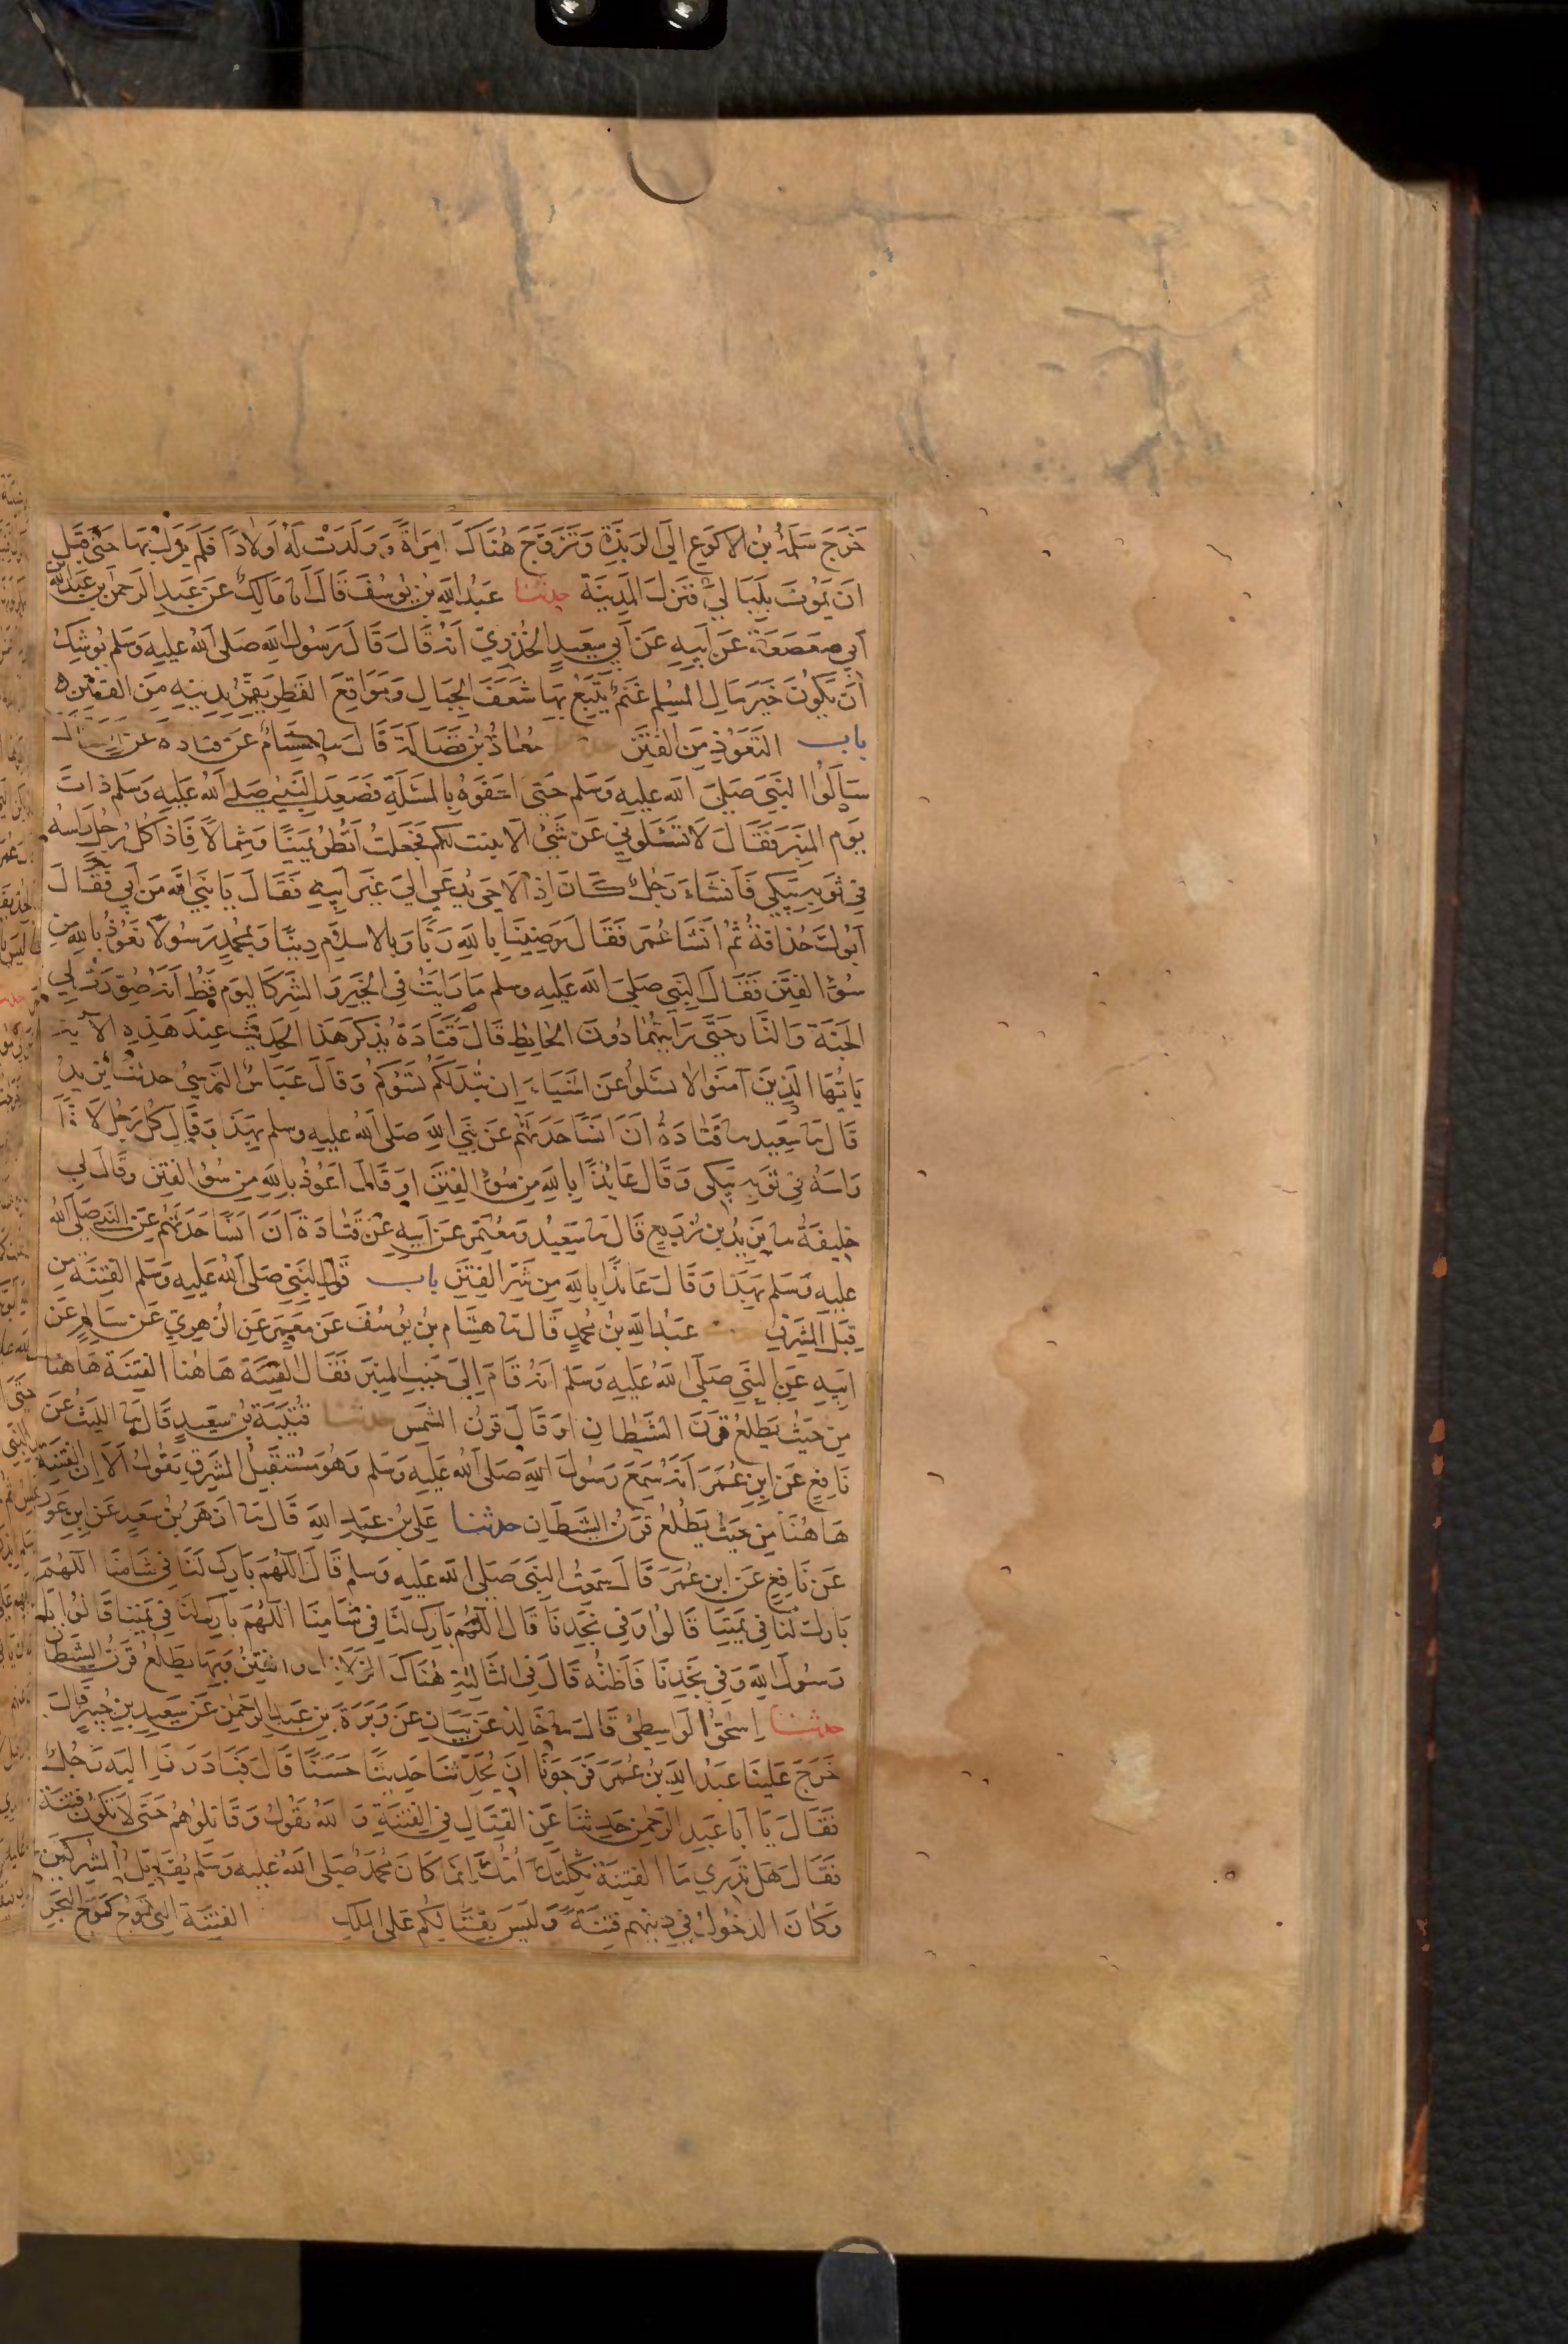 خَرَجَ سَلَمَةُ بنُ الاكوَعِ اِلَى الرَبَذَةِ وَتَزَوَّجَ هُنَاكَ امرَاةً وَوَلَدَتْ لَهُ اَولادًا فَلَم يَزَل بهَا حَتى قَبلَ
اَن يَمُوتَ بِلَيَالٍ فَنَزلَ المَدِينَة حدثنا عَبدُ اللهِ بنُ يُوسُفَ قَالَ انا مَالِكٌ عَن عَبدِ الرَحمنِ بنِ عَبدِ اللهِ بن
اَبي صَعصَعَة عَن اَبِيهِ عَن اَبي سَعِيدٍ الخُدرِيّ اَنَّهُ قَالَ قَالَ رَسُولُ اللهِ صَلى اللهُ عليه وَسَلم يُوشِكُ
اَن يَكُونَ خَيرَ مَالِ المُسلِم غَنَمٌ يَتَّبِعُ بِهَا شَعَفَ الجِبَالِ وَمَوَاقِعَ القَطرِ يَفِرُّ بِدِينِهِ مِنَ الفِتَنِ
باب التَعَوُّذِ مِنَ الفِتَنِ مُعَاذُ بنُ فَضَالَةَ قَالَ نا هِشَامٌ عَن قتادة عَن انس قال
سَاَلُوا النَبِيَ صَلىَ الله عليه وَسَلم حَتى احفَوهُ بِالمسْئَلَةِ فَصَعِدَ النَبِيُ صَلى اللهُ عَليه وَسَلم ذاتَ
يَوم المِنبَر فَقَالَ لا تَسئَلُوني عَن شَيْءٍ الا بينت لَكم فَجَعَلتُ اَنظُرُ يَمِينًا وَشِمالًا فَاِذا كُل رَجُلٍ رَاسهُ
في ثَوبِهِ يَبكي فَاَنشَاَ رَجُلٌ كَانَ اِذا لاحَى يُدعَى اليَ غَيرِ اَبِيهِ فَقَالَ يَا نَبِيَّ الله مَن اَبي فَقَالَ
اَبُوكَ حُذافَةُ ثُمَّ انشَا عُمَر فَقَالَ رَضِينَا بِاللهِ رَبًّا وَبِالاسلامِ دِينًا وَبمُحَمدٍ رَسُولًا نَعُوذُ بالله مِن
سُوْءِ الفِتَن فَقَالَ النَبِي صَلىَ الله عَليه وسلم مَا رَايتُ فِي الخَيرِ وَالشَرِ كَاليَوم قَطُّ اَنَّهُ صُوِّرَت لِي
الجَنَة وَالنَّار حَتَّى رَايتُهُمَا دُونَ الحَائِطِ قَالَ قَتَادَةُ يُذكَر هَذا الحَدِيثُ عِندَ هَذِهِ الآية
يَاَيُّهَا الَذِينَ آمَنُوا لا تسئَلُوا عَن اشَياءَ اِن تُبدَ لَكُم تَسُؤكُم وَقالَ عَبَاسُ النَرسيُ حدثنا يَزِيدُ
قَالَ نا سَعِيد نا قَتَادَةُ اَنَّ انَسًا حَدَثَهُم عَن نَبِيِ اللهِ صَلى اللهُ عليه وسلم بهَذا وَقَالَ كُل رَجُلٍ لافًّا
رَاسَهُ في ثَوبِهِ يَبكى وَقَالَ عَائِذًا بِاللهِ مِن سُوءِ الفِتَنِ او قَالَ اَعُوذُ بِاللهِ مِن سُوءِ الفِتَنِ وَقَالَ لِي
خَلِيفَةُ نا يَزِيدُ بن زُرَيعٍ قَالَ نا سَعِيدٌ وَمُعتَمِر عَن اَبِيهِ عَن قَتَادَةَ اَنَّ انَسًا حَدَثَهُم عَنِ النَبي صَلى الله
عليه وَسَلم بهَذا وَقَالَ عَائِذًا بِاللهِ مِن شَرِّ الفِتَنِ باب قَولِ النَبيّ صَلى الله عَليه وَسَلم الفِتنَة مِن
قِبَلِ المَشرِقِ عَبدُ اللهِ بنُ مُحَمدٍ قَالَ نا هِشَام بنُ يُوسُفَ عَن مَعمَرٍ عَن الزُهرِيّ عَن سَالمٍ عَن
ابِيهِ عَنِ النَبي صَلى الله عَليه وَسَلم اَنَّهُ قَامَ اِلى جَنبِ المِنبَر فَقَالَ الفِتنَة هَاهُنا الفِتنَة هَاهنا
مِن حَيثُ يَطلعُ قَرنُ الشَيطَانِ او قَالَ قَرنُ الشَمس حدثنا قُتَيبَةُ بنُ سَعِيدٍ قَالَ نا اللَيثُ عَن
نَافِعٍ عَن ابنِ عُمَرَ اَنَّهُ سَمِعَ رَسُولَ اللهِ صَلى اللهُ عَليه وَسَلم وَهُوَ مُستَقبِلُ المَشرِقِ يَقُولُ اَلا اِنَّ الفِتنَة
هَاهُنَا مِن حَيثُ يَطلُعُ قَرنُ الشَيطَانِ حدثنا عَليُ بنُ عَبدِ اللهِ قَالَ نا ازهَرُ بنُ سَعِيدٍ عَن ابنِ عَونٍ
عَن نَافِعٍ عَن ابنِ عُمَرَ قَالَ سَمِعتُ النَبيَ صَلى الله عَليه وسلم قَالَ اللَّهُمَّ بَارِك لَنَا في شَامِنَا اللَّهُمَّ
بَارِك لَنَا في يَمَنِنَا قَالُوا وَفي نَجدِنَا قَالَ اللَّهُم بَارِك لَنَا في شَامِنَا اللَّهُمَ بَارِك لَنَا في يَمَنِنا قَالُوا يَا
رَسُولَ اللهِ وَفي نَجدِنَا فَاَظُنُّه قَالَ فِي الثَالِثَةِ هُنَاكَ الزَلازِل والفِتَنُ وَبِهَا يَطلُعُ قَرنُ الشَيطَان
حدثنا اِسحَقُ الوَاسِطِيُ قَالَ نا خَالِدٌ عَن بَيَانٍ عَن وَبَرَةَ بن عَبدِ الرَحمن عَن سَعِيدِ بنِ جُبَيرٍ قَالَ
خَرَجَ عَلَينَا عَبدُ اللهِ بنُ عُمَرَ فَرَجَونَا اَن يُحَدِّثنَا حَدِيثًا حَسَنًا قَالَ فَبَادَرَنَا اِلَيه رَجُلٌ
فَقَالَ يَا اَبَا عَبدِ الرَحمنِ حَدِثنَا عَن القِتَالِ فِي الفِتنَةِ وَاللهُ يَقُولُ وَقَاتِلُوهُم حَتَى لا تَكُونَ فِتنَة
فَقَالَ هَل تَدرِي مَا الفِتنَة ثَكِلَتكَ اُمُّكَ اِنَّمَا كَانَ مُحَمَدٌ صَلى اللهُ عَليه وَسَلم يُقَاتِلُ المُشرِكِينَ
وَكَانَ الدخُولُ في دِينِهِم فِتنَةً وَلَيسَ بِقِتَالِكُم عَلى المُلكِ الفِتنَة التِي تَمُوجُ كَمَوجِ البَحرِ